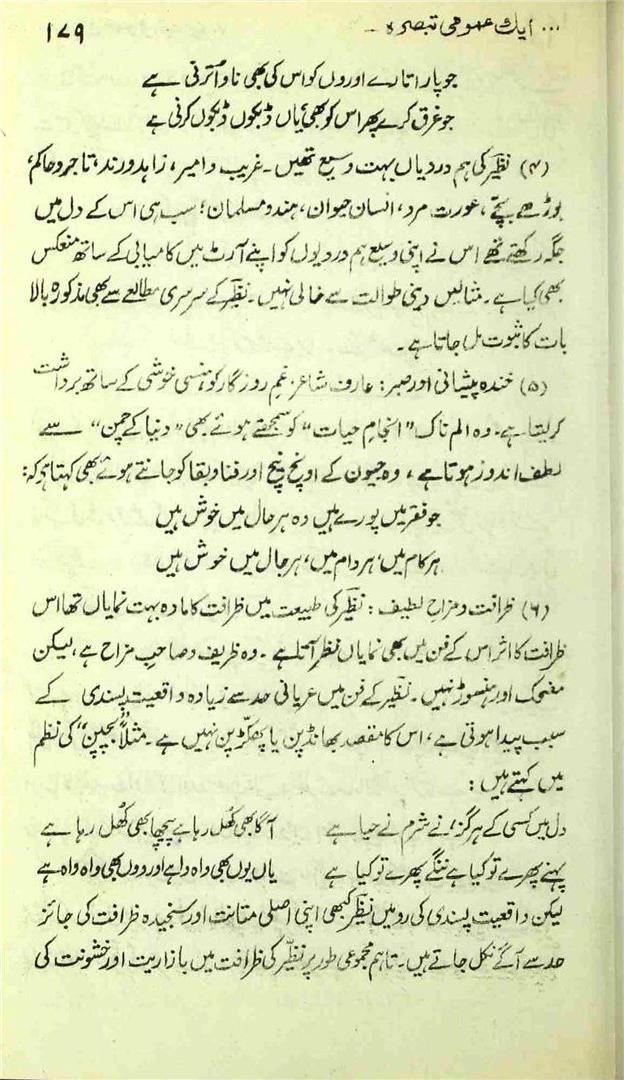 ... ایک عمومی تبصرہ ۔ ۱۷۹
جو پار اتارے اوروں کو اس کی بھی ناؤ اترنی ہے
جو غرق کرے پھر اس کو بھی یاں ڈبکوں ڈبکوں کرنی ہے
(۴) نظیرؔ کی ہم دردیاں بہت وسیع تھیں۔ غریب و امیر، زاہد و رند، تاجر و حاکم،
بوڑھے بچے، عورت مرد، انسان حیوان، ہندو مسلمان؛ سب ہی اس کے دل میں
جگہ رکھتے تھے اس نے اپنی وسیع ہم دردیوں کو اپنے آرٹ میں کامیابی کے ساتھ منعکس
بھی کیا ہے۔ مثالیں دینی طوالت سے خالی نہیں۔ نظیرؔ کے سرسری مطالعے سے بھی مذکورہ بالا
بات کا ثبوت مل جاتا ہے۔
(۵) خندہ پیشانی اور صبر: عارف شاعر غم روزگار کو ہنسی خوشی کے ساتھ برداشت
کر لیتا ہے۔ وہ الم ناک "انجام حیات" کو سمجھتے ہوئے بھی "دنیا کے چمن" سے
لطف اندوز ہوتا ہے، وہ جیون کے اونچ نیچ اور فنا و بقا کو جانتے ہوئے بھی کہتا ہے کہ:
جو فقر میں پورے ہیں وہ ہر حال میں خوش ہیں
ہر کام میں، ہر دام میں، ہر جال میں خوش ہیں
(۶) ظرافت و مزاح لطیف: نظیرؔ کی طبیعت میں ظرافت کا مادہ بہت نمایاں تھا اس
ظرافت کا اثر اس کے فن میں بھی نمایاں نظر آتا ہے۔ وہ ظریف و صاحبِ مزاح ہے، لیکن
مضحک اور ہنسوڑ نہیں۔ نظیرؔ کے فن میں عریانی حد سے زیادہ واقعیت پسندی کے
سبب پیدا ہوتی ہے، اس کا مقصد بھانڈپن یا پھکڑپن نہیں ہے۔ مثلاً "بچپن" کی نظم
میں کہتے ہیں:
دل میں کسی کے ہرگز، نے شرم نے حیا ہے آگا بھی کھل رہا ہے پیچھا بھی کھل رہا ہے
پہنے پھرے تو کیا ہے ننگے پھرے تو کیا ہے یاں یوں بھی واہ وا ہے اور ووں بھی واہ واہ ہے
لیکن واقعیت پسندی کی رو میں نظیرؔ کبھی اپنی اصلی متانت اور سنجیدہ ظرافت کی جائز
حد سے آگے نکل جاتے ہیں۔ تاہم مجموعی طور پر نظیرؔ کی ظرافت میں بازاریت اور خشونت کی